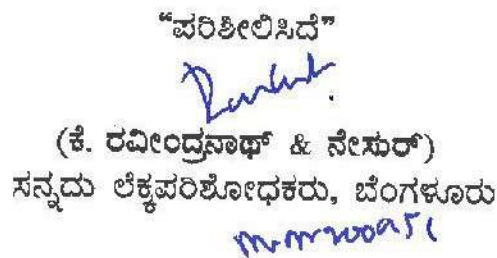 “ಪರಿಶೀಲಿಸಿದೆ”
(ಕೆ. ರವೀಂದ್ರನಾಥ್ & ನೇಸುರ್)
ಸನ್ನದು ಲೆಕ್ಕಪರಿಶೋಧಕರು, ಬೆಂಗಳೂರು